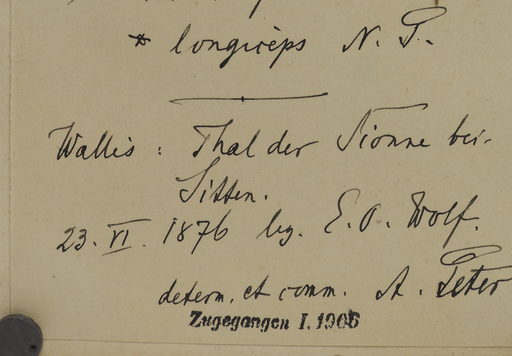 * longiceps N. P.
Wallis: Thal der Sionne bei
Sitten.
23. VI. 1876 leg. F. O. Wolf.
determ. et comm. A. Peter
Zugegangen I. 1906